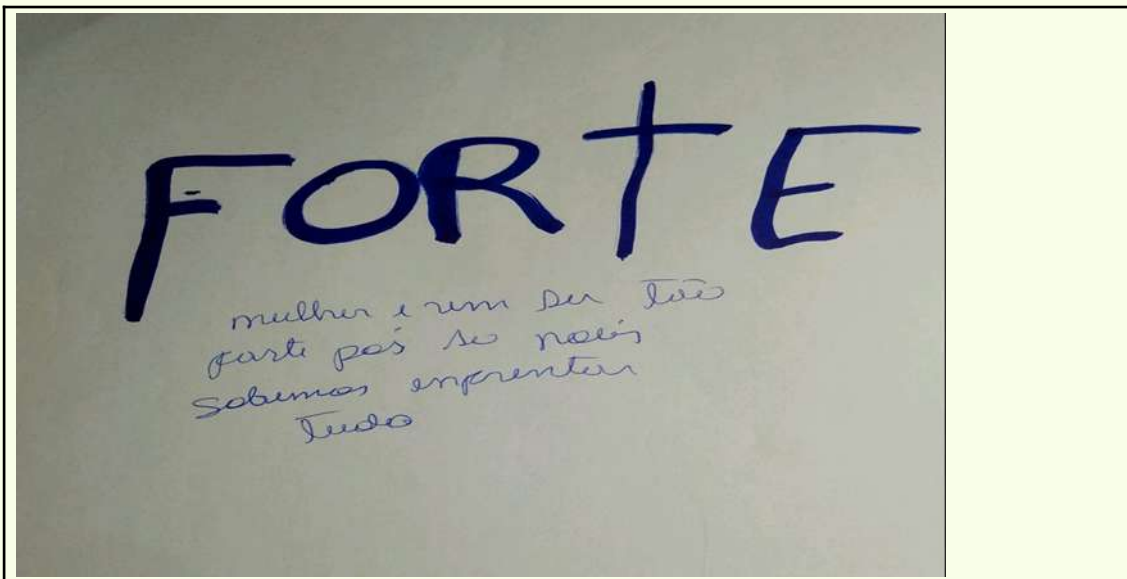 FORTE
mulher e um ser tão
forte pos so nois
sabemos enfrentar
tudo